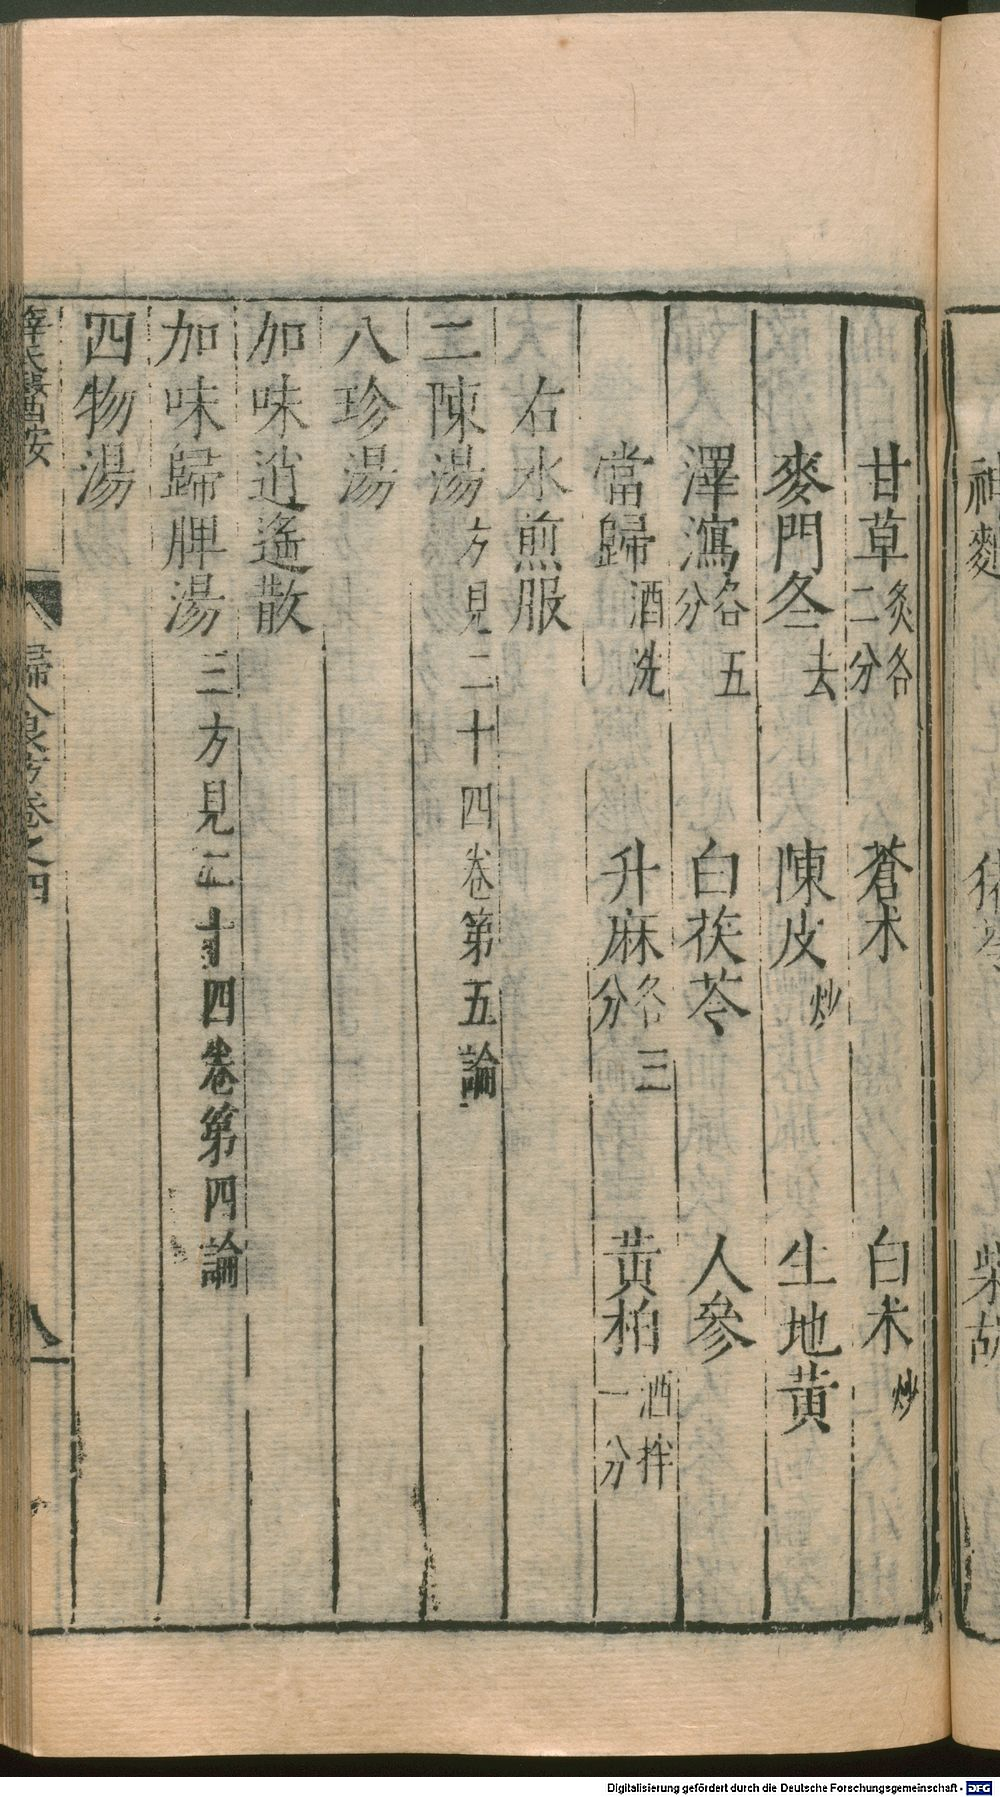 甘草炙各二分　蒼术　白术炒
麥門冬去　陳皮炒　生地黄
澤瀉各五分　白茯苓　人參
當歸酒洗　升麻各三分　黄柏酒拌一分
右水煎服
二陳湯方見二十四卷第五論
八珍湯
加味逍遙散
加味歸脾湯三方見二十四卷第四論
四物湯
薛氏醫案　婦人良方卷之四　八
神麴　柴胡
Digitalisierung gefördert durch die Deutsche Forschungsgemeinschaft - DFG